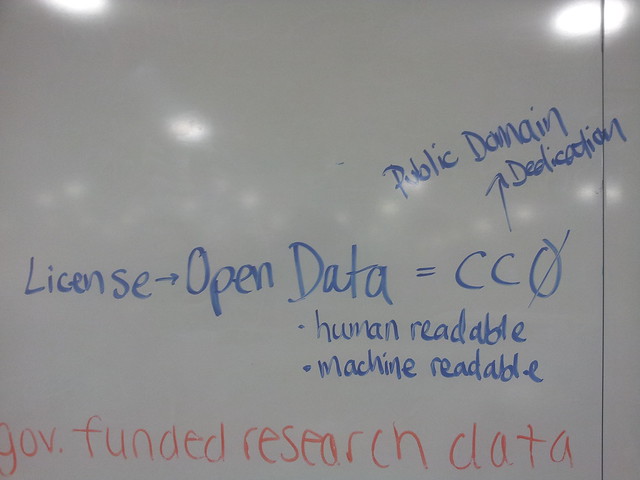 Public Domain
Dedication
License → Open Data = CC0
· human readable
• machine readable
gov. funded research data